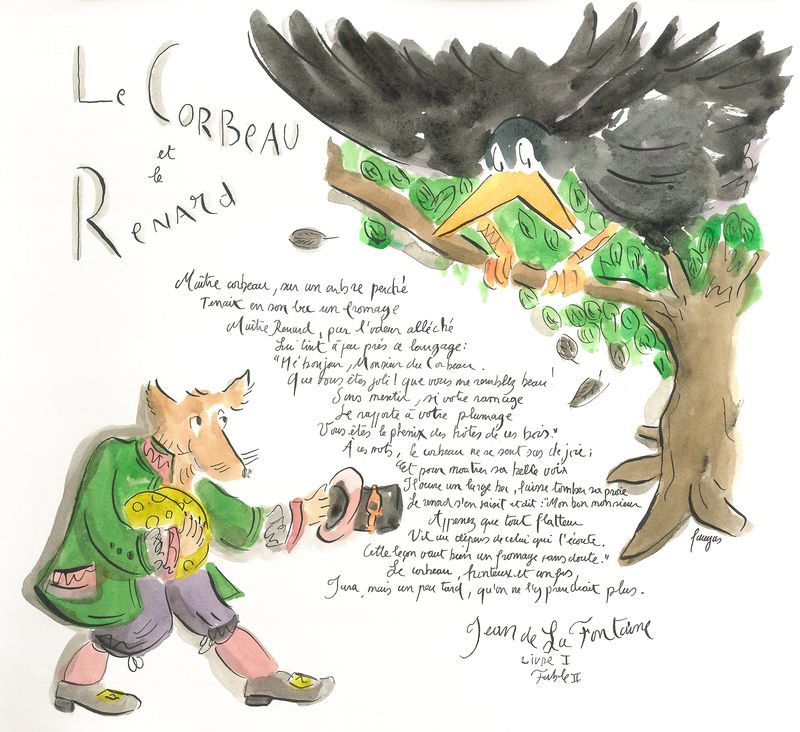 Le Corbeau
et
le
Renard
Maître corbeau, sur un arbre perché
Tenait en son bec un fromage
Maître Renard, par l'odeur alléché
Lui tint à peu près ce langage:
"Hé bonjour, Monsieur du Corbeau.
Que vous êtes joli! que vous me semblez beau!
Sans mentir, si votre ramage
Se rapporte à votre plumage
Vous êtes le phénix des hôtes de ces bois."
À ces mots, le corbeau ne se sent pas de joie;
Et pour montrer sa belle voix
Il ouvre un large bec, laisse tomber sa proie
Le renard s'en saisit et dit: "Mon bon monsieur
Apprenez que tout flatteur
Vit au dépens de celui qui l'écoute.
Cette leçon vaut bien un fromage sans doute."
Le corbeau, honteux et confus
Jura, mais un peu tard, qu'on ne l'y prendrait plus.
Jean de La Fontaine
Livre I
Fable II